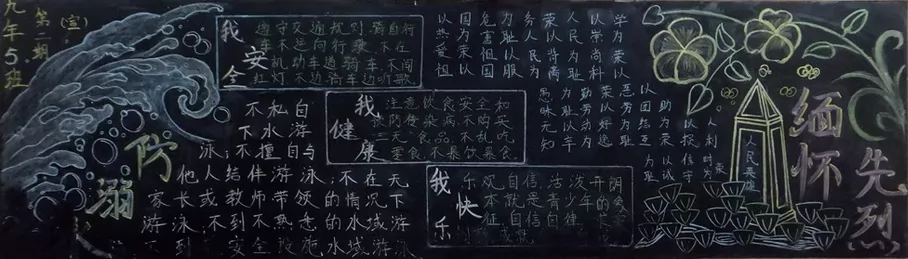 九年5班
第二期
(宣)
我安全
遵守交通规则,骑自行
车不逆向行乘,不在
机动车道骑车,不闯
红灯不边骑车边听歌
防溺
不私自
下水游
泳;不擅自与
他人结伴游泳;不在无
家长或教师带领的情况下
游泳;不到不熟悉的水域游
不到 安全设施水域游泳
我健康
注意饮食安全和
预防传染病,不购买
"三无"食品,不乱吃
零食,不暴饮暴食.
我快乐
乐观自信,活泼开朗
本就是青少年的
征 自信自律
以热爱祖
国为荣以
危害祖国
为耻以服
务人民为
荣以背离
人民为耻
以崇尚科
学为荣以
愚昧无知
为耻以辛
勤劳动为
荣以好逸
恶劳为耻
以团结互
助为荣
人民英雄
缅怀
先烈